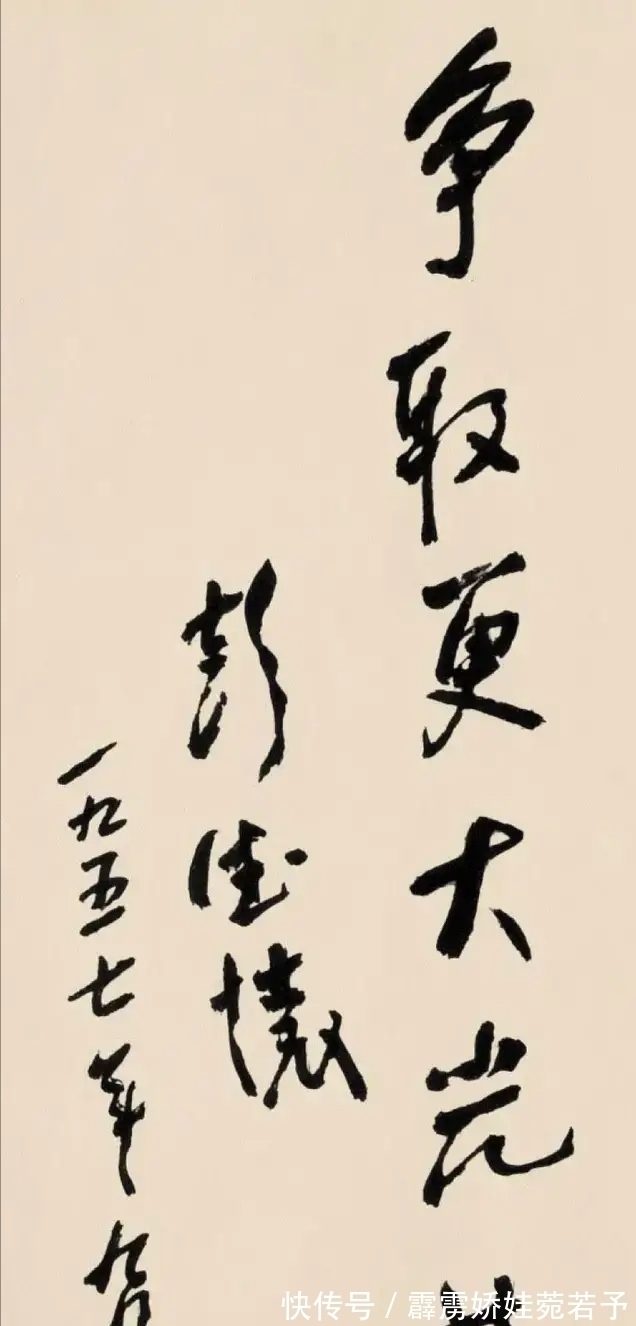 争取更大光
彭德怀
一九五七年九月
快传号/霹雳娇娃菀若予